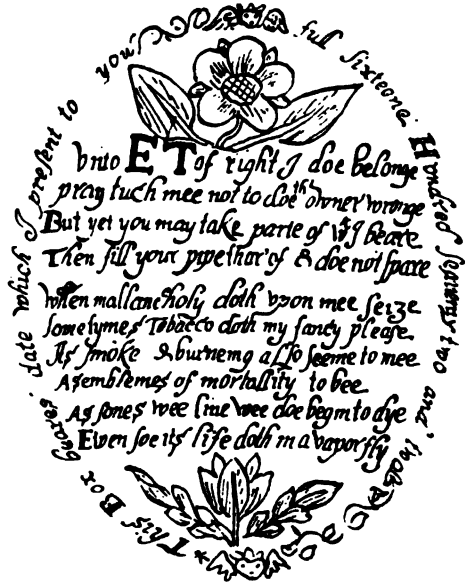 This Box beares date which I present to you full sixteone Hundred Seaventy two and
Vnto ET of right I doe belonge
pray tuch mee not to doe th owner wronge
But yet you may take parte of wt I beare
Then fill your pipe ther'of & doe not spare
When mallancholy doth vpon mee seize
Sometymes Tobacco doth my fancy please
Its smoke & burneing allso seeme to mee
As emblemes of mortallity to bee
As sones wee liue wee doe begin to dye
Even soe its life doth in a vapor fly